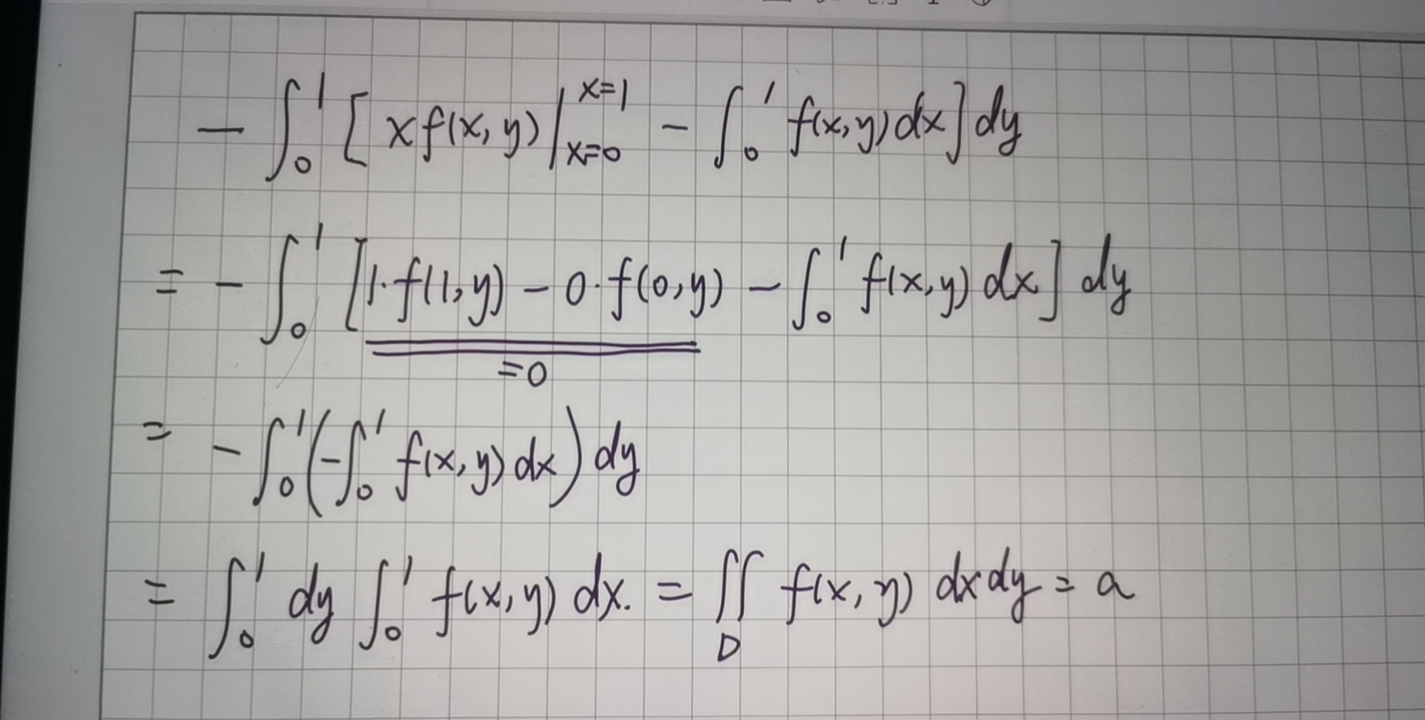 - ∫₀¹ [ x f(x, y) |ₓ₌₀ˣ⁼¹ - ∫₀¹ f(x, y) dx ] dy
= - ∫₀¹ [ 1· f(1, y) - 0· f(0, y) - ∫₀¹ f(x, y) dx ] dy
=0
= - ∫₀¹ ( - ∫₀¹ f(x, y) dx ) dy
= ∫₀¹ dy ∫₀¹ f(x, y) dx. = ∬_D f(x, y) dxdy = a